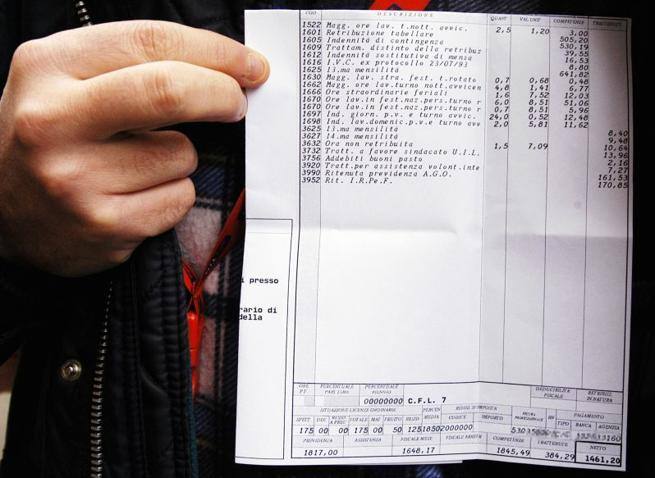 COD. DESCRIZIONE QUANT VAL UNIT COMPETENZE TRATTENUTE
1522 Magg. ore lav. t.nott. avvic. 2,5 1,20 3,00
1601 Retribuzione tabellare 505,20
1605 Indennità di contingenza 530,19
1609 Trattam. distinto della retribuz 39,55
1612 Indennità sostitutiva di mensa 16,53
1616 I.V.C. ex protocollo 23/07/93 8,80
1625 13.ma mensilità 641,82
1630 Magg. lav. stra. fest. t.rotato 0,7 0,68 0,48
1662 Magg. ore lav.turno nott.avvicen 4,8 1,41 6,77
1666 Ore straordinarie feriali 1,6 7,52 12,03
1670 Ore lav.in fest.naz.pers.turno r 6,0 8,51 51,06
1670 Ore lav.in fest.naz.pers.turno r 0,7 8,51 5,96
1697 Ind. giorn. p.v. e turno avvic. 24,0 0,52 12,48
1698 Ind. lav.domenic.p.v.e turno avv 2,0 5,81 11,62
3625 13.ma mensilità 8,40
3627 14.ma mensilità 9,48
3632 Ora non retribuita 1,5 7,09 10,64
3732 Tratt. a favore sindacato U.I.L. 13,96
3756 Addebiti buoni pasto 2,16
3920 Tratt.per assistenza volont.inte 7,27
3990 Ritenuta previdenza A.G.O. 161,53
3952 Rit. I.R.Pe.F. 170,85
presso
rario di
della
PERCENTUALE PERCENTUALE DEDUCIBILE
PART TIME FISCALE
00000000 C.F.L. 7
SITUAZIONE LICENZE ORDINARIE PAGAMENTO
SPETT FRUITO CODICE IMPORTO TIPO BANCA AGENZIA
175 00 00 175 00 50 125 18502000000
PREVIDENZA ASSISTENZA FISCALE MESE COMPETENZE TRATTENUTE NETTO
1817,00 1648,17 1845,49 384,29 1461,20